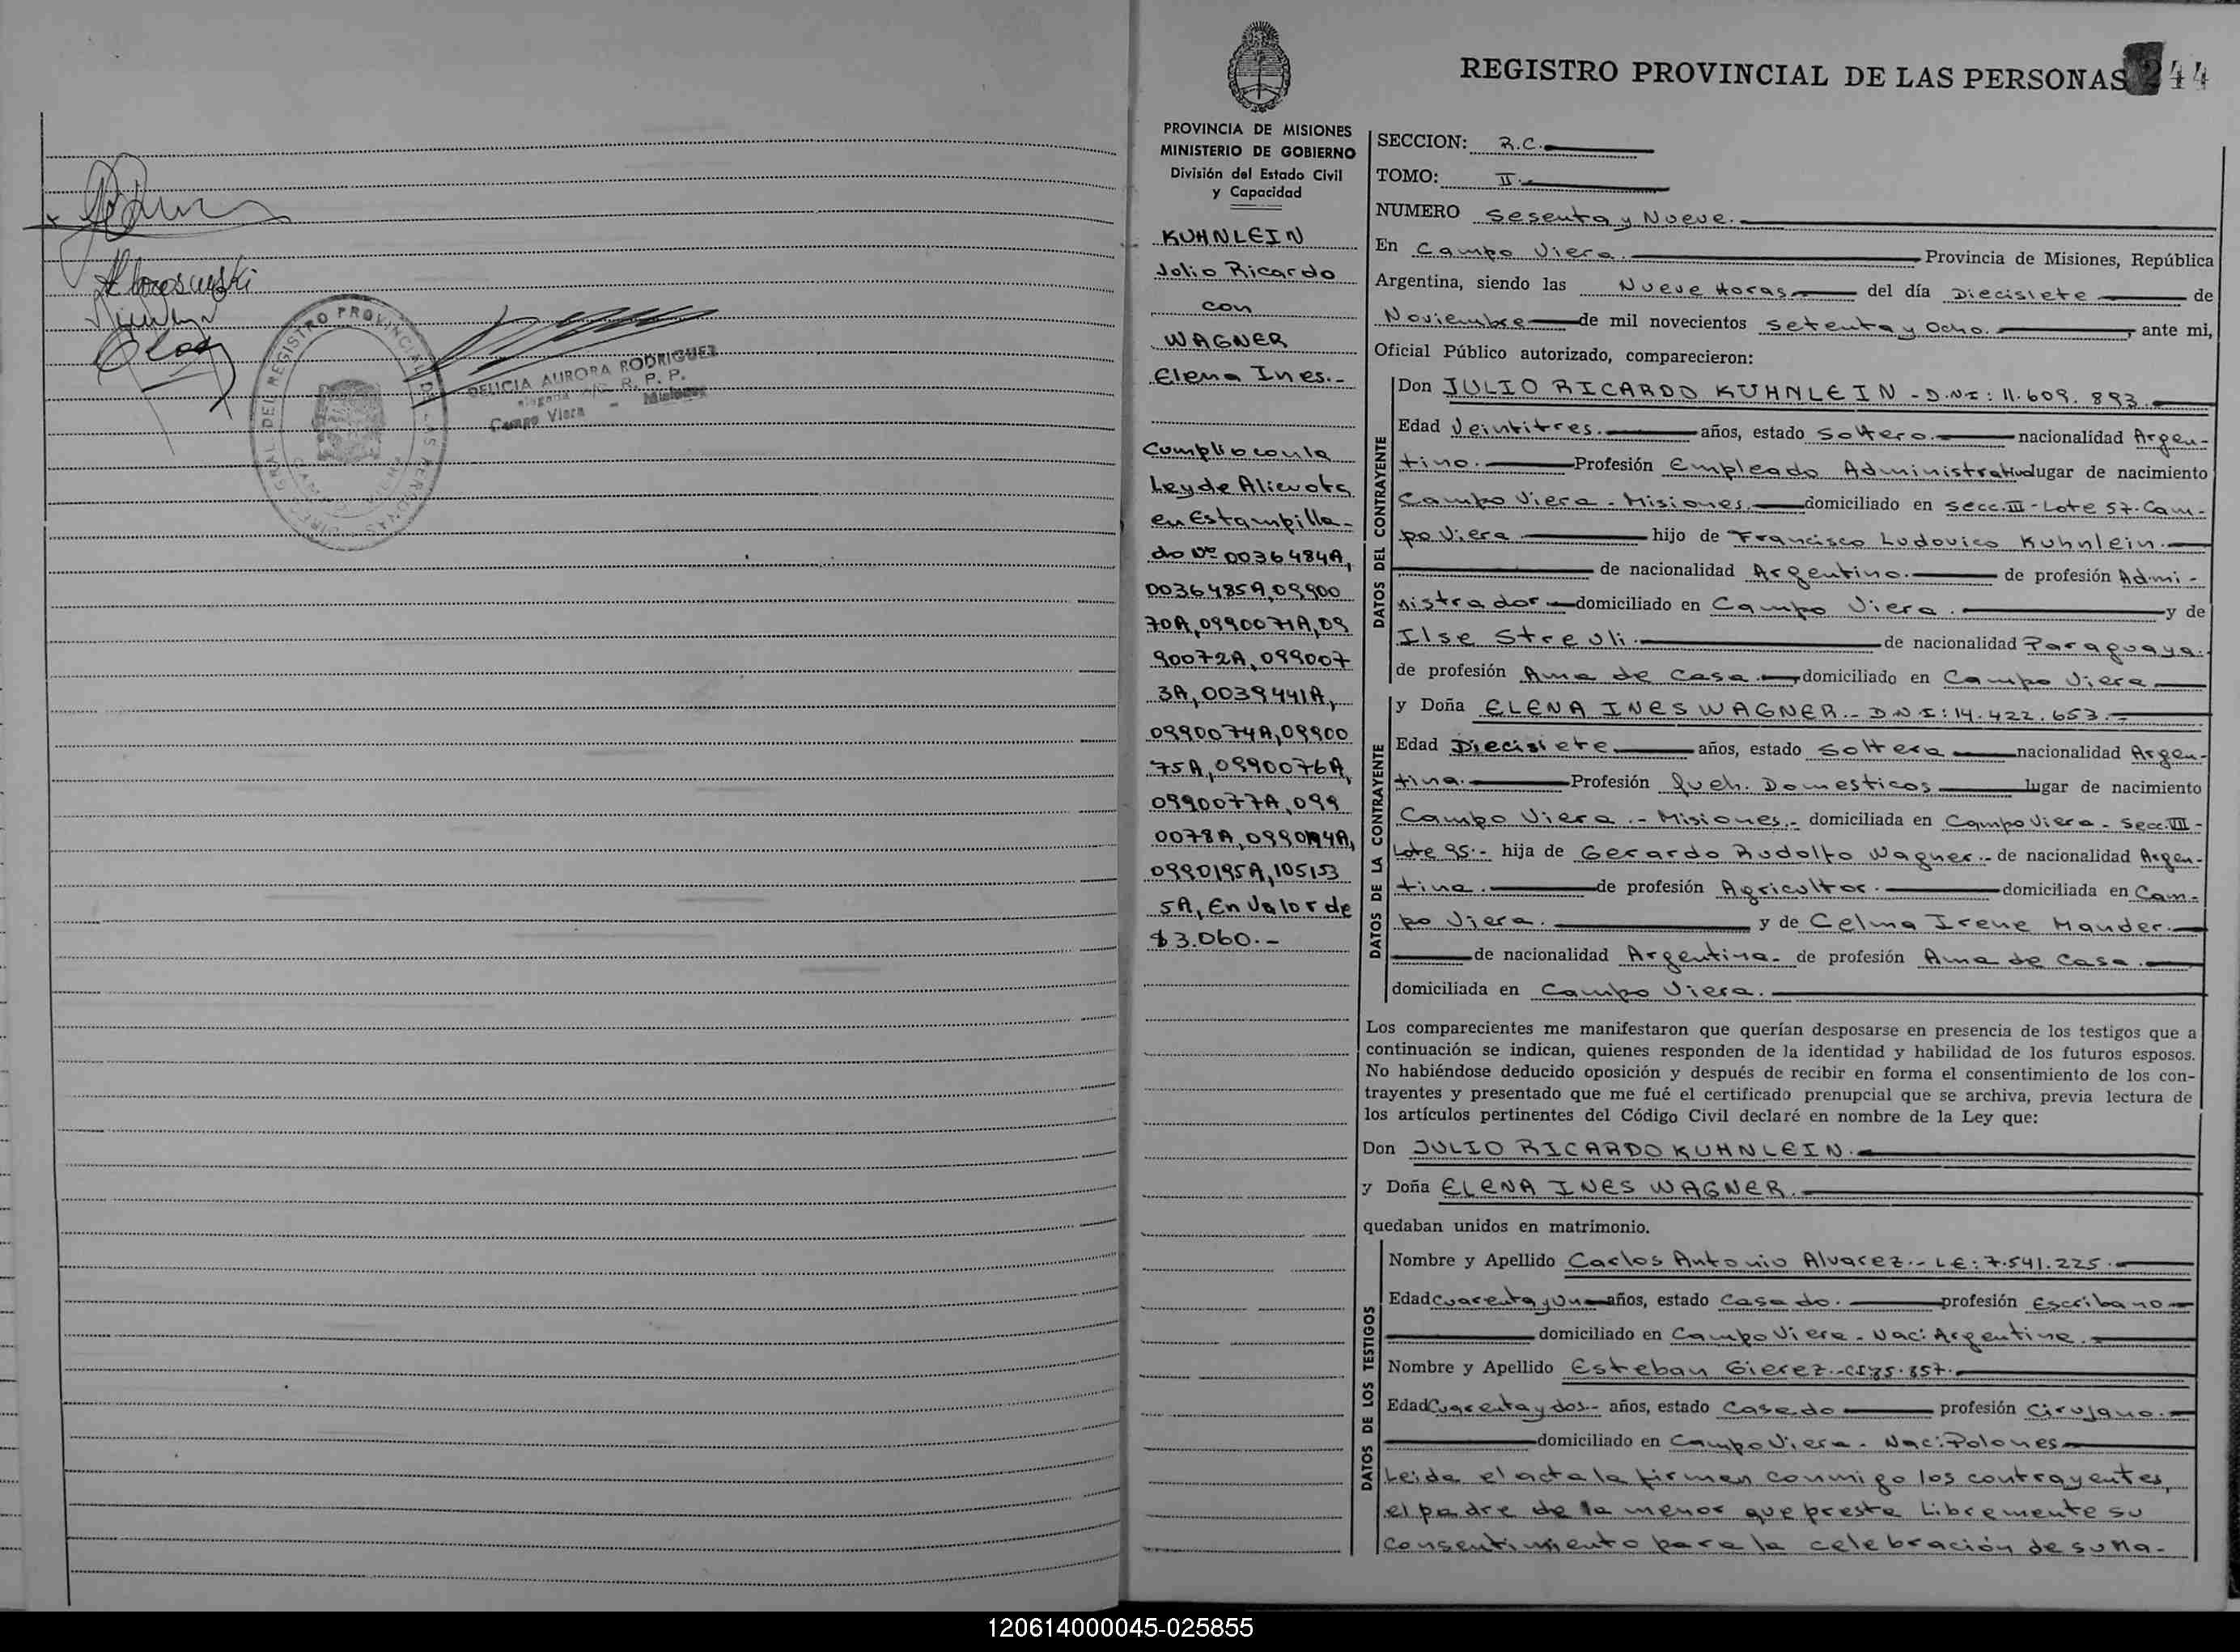 DELICIA AURORA RODRIGUEZ
R. P. P.
Campo Viera - Misiones
REGISTRO PROVINCIAL DE LAS PERSONAS
244
PROVINCIA DE MISIONES
MINISTERIO DE GOBIERNO
División del Estado Civil
y Capacidad
KUHNLEIN
Julio Ricardo
con
WAGNER
Elena Ines.-
Cumplio con la
Ley de Alicuota
en Estampilla-
do Nº 0036484A,
0036485A, 09900
70A, 0990071A, 09
90072A, 099007
3A, 0039441A,
0990074A, 09900
75A, 0990076A,
0990077A, 099
0078A,
0990195A, 105153
5A, En Valor de
$ 3.060.-
SECCION: R.C.
TOMO: II.-
NUMERO Sesenta y Nueve.
En Campo Viera. Provincia de Misiones, República
Argentina, siendo las Nueve Horas del día Diecisiete de
Noviembre de mil novecientos setenta y Ocho. , ante mi,
Oficial Público autorizado, comparecieron:
DATOS DEL CONTRAYENTE
Don JULIO RICARDO KUHNLEIN - D.N.I: 11.609.893.
Edad Veintitres. años, estado Soltero. nacionalidad Argen-
tino. Profesión Empleado Administrativo lugar de nacimiento
Campo Viera - Misiones. domiciliado en Secc. III - Lote 57. Cam-
po Viera hijo de Francisco Ludovico Kuhnlein.
de nacionalidad Argentino. de profesión Admi-
nistrador domiciliado en Campo Viera. y de
Ilse Streuli. de nacionalidad Paraguaya.
de profesión Ama de Casa. domiciliado en Campo Viera
DATOS DE LA CONTRAYENTE
y Doña ELENA INES WAGNER.- D.N.I: 14.422.653.-
Edad Diecisiete años, estado Soltera nacionalidad Argen-
tina. Profesión Queh. Domesticos lugar de nacimiento
Campo Viera.- Misiones.- domiciliada en Campo Viera - Secc. III -
Lote 95.- hija de Gerardo Rudolfo Wagner.- de nacionalidad Argen-
tina. de profesión Agricultor. domiciliada en Cam-
po Viera. y de Celma Irene Mander.
de nacionalidad Argentina- de profesión Ama de Casa.
domiciliada en Campo Viera.
Los comparecientes me manifestaron que querían desposarse en presencia de los testigos que a
continuación se indican, quienes responden de la identidad y habilidad de los futuros esposos.
No habiéndose deducido oposición y después de recibir en forma el consentimiento de los con-
trayentes y presentado que me fué el certificado prenupcial que se archiva, previa lectura de
los artículos pertinentes del Código Civil declaré en nombre de la Ley que:
Don JULIO RICARDO KUHNLEIN.
y Doña ELENA INES WAGNER.
quedaban unidos en matrimonio.
DATOS DE LOS TESTIGOS
Nombre y Apellido Carlos Antonio Alvarez.- LE: 7.541.225.
Edad Cuarenta y Un años, estado Casado. profesión Escribano
domiciliado en Campo Viera - Nac: Argentina.
Nombre y Apellido Esteban Gierez.-
Edad Cuarenta y dos.- años, estado Casado profesión Cirujano.
domiciliado en Campo Viera - Nac: Polones
Leida el acta la firman conmigo los contrayentes,
el padre de la menor que presta Libremente su
consentimiento para la celebración de su Ma-
120614000045-025855